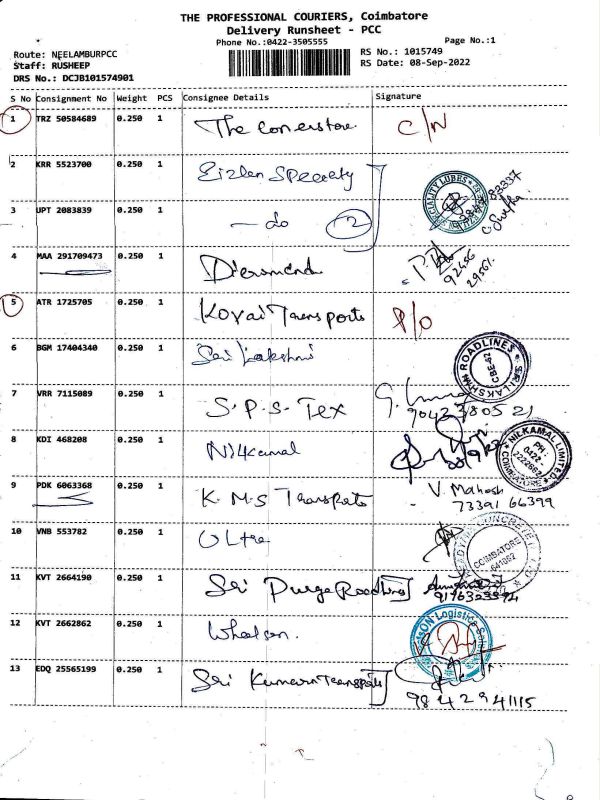 THE PROFESSIONAL COURIERS, Coimbatore
Delivery Runsheet - PCC
Phone No.:0422-3505555
Page No.:1
Route: NEELAMBURPCC
RS No.: 1015749
Staff: RUSHEEP
RS Date: 08-Sep-2022
DRS No.: DCJB101574901
S No Consignment No Weight PCS Consignee Details Signature
1 TRZ 50584689 0.250 1 The Cornerstone C/N
2 KRR 5523700 0.250 1
SPECIALITY LUBES
3 UPT 2083839 0.250 1 — do 2
4 MAA 291709473 0.250 1 Diesmend
92656
5 ATR 1725705 0.250 1 Kovai Transports P/O
6 BGM 17404340 0.250 1 Sri Lakshmi
SRI LAKSHMI ROADLINES CBE-62
7 VRR 7115089 0.250 1 S.P.S. Tex
9042380521
8 KDI 468208 0.250 1 Nilkamal
NILKAMAL LIMITED COIMBATORE PH: 0422
9 PDK 6063368 0.250 1 K.M.S Transports V. Mahesh
73391 66399
10 VNB 553782 0.250 1 Ultra
COIMBATORE
11 KVT 2664190 0.250 1 Sri Durga Roadlines
12 KVT 2662862 0.250 1
Logistics
13 EDQ 25565199 0.250 1 Sri Kumaran Transports
9842941115